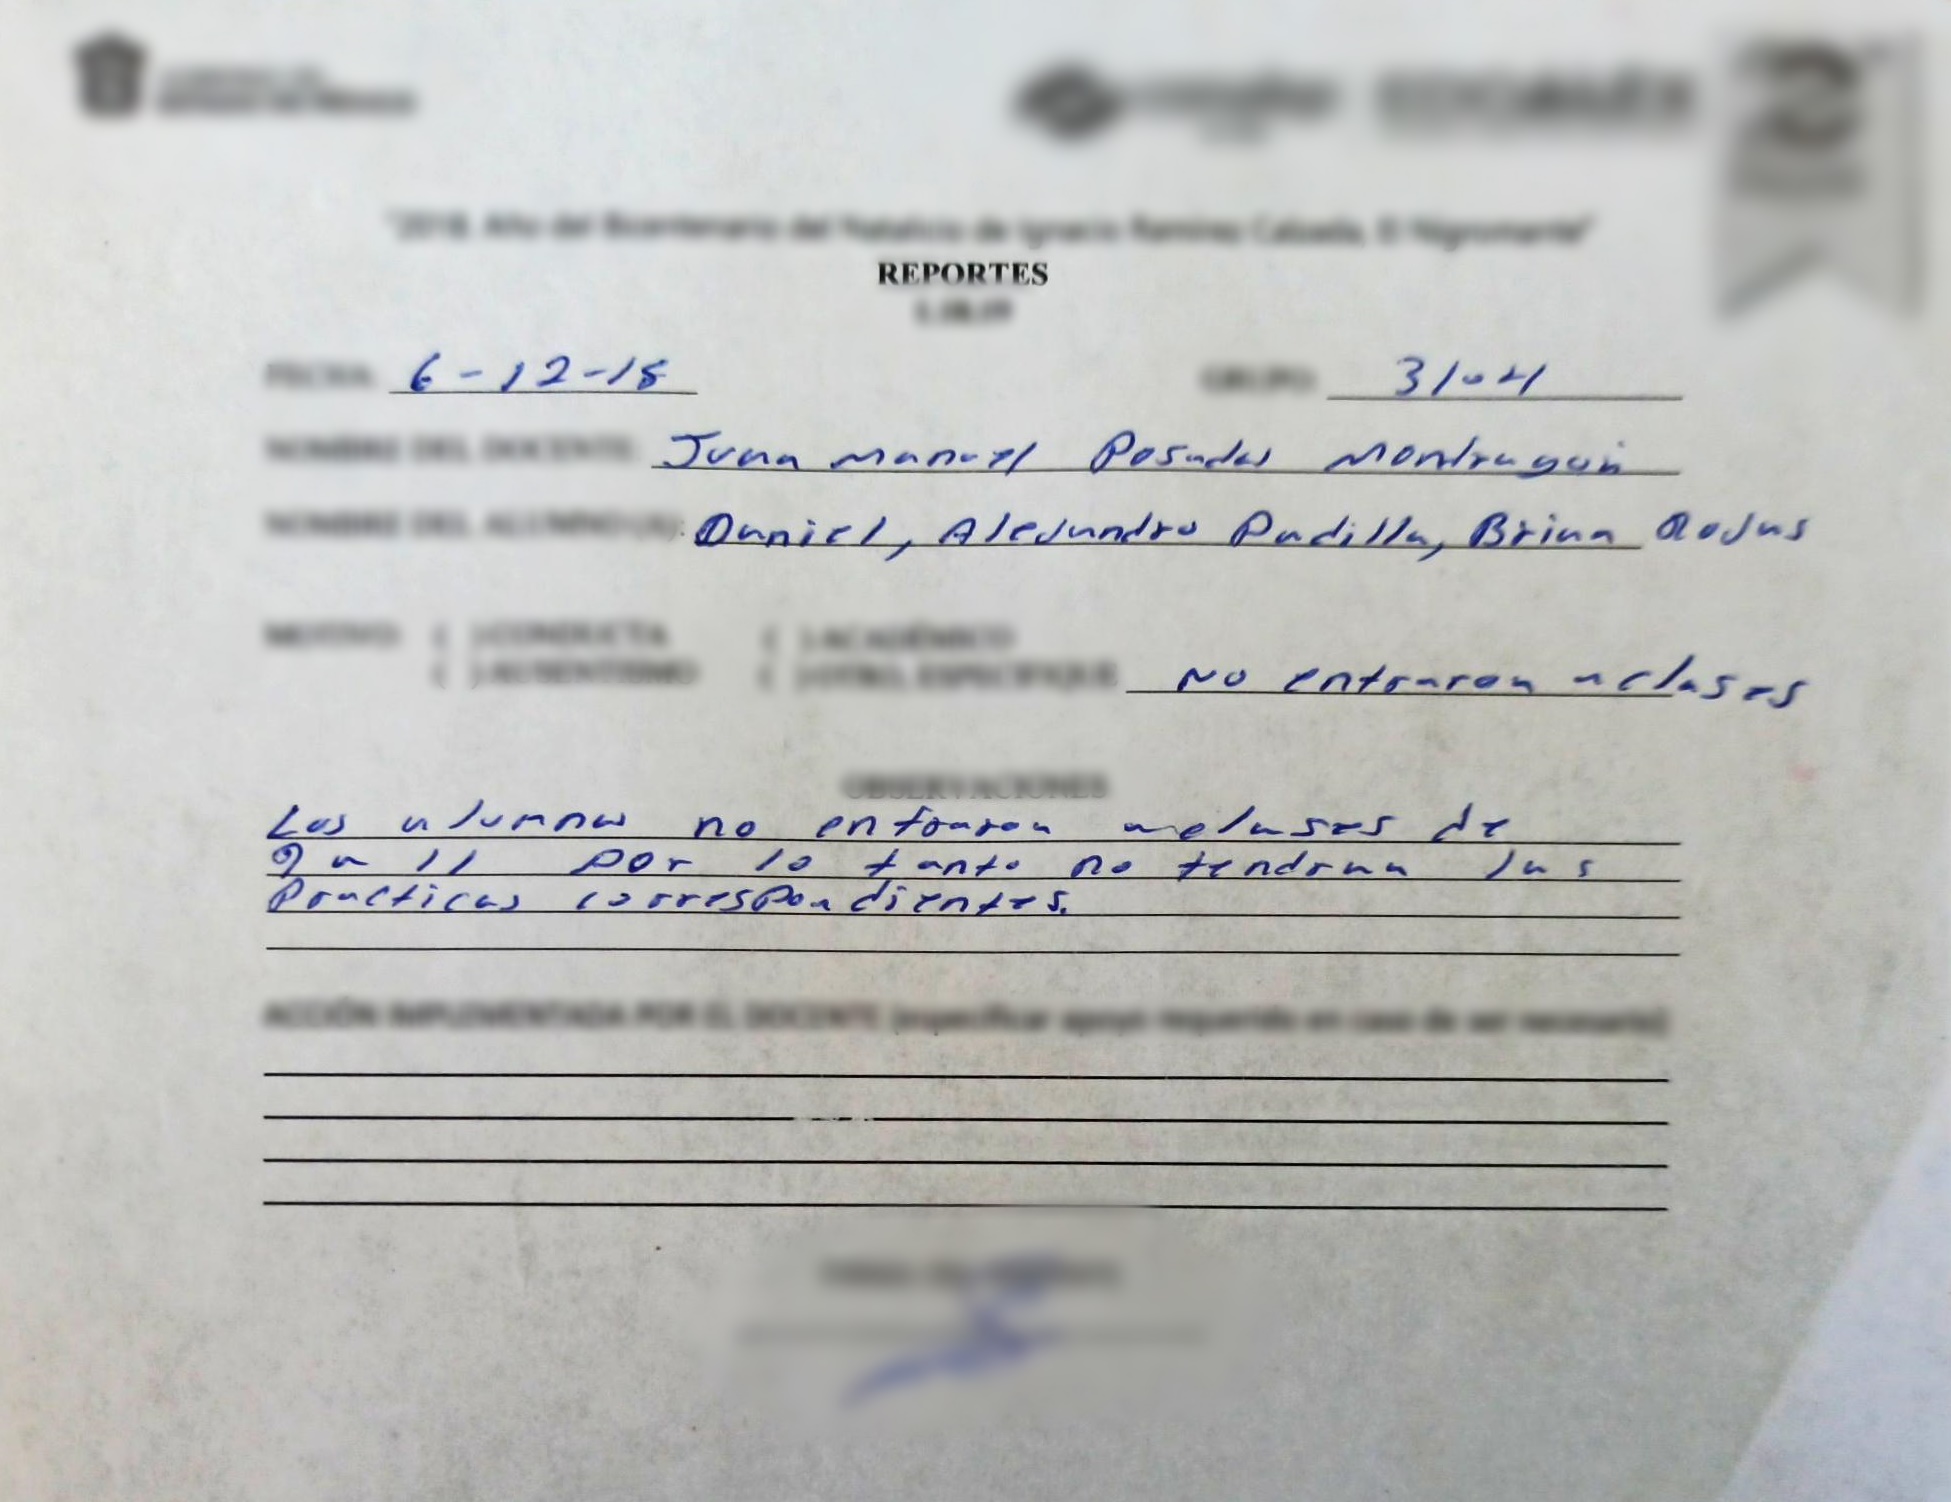 "2018. Año del Bicentenario del Natalicio de Ignacio Ramírez Calzada, El Nigromante"
REPORTES
FECHA: 6-12-18 GRUPO: 3104
NOMBRE DEL DOCENTE: Juan Manuel Posadas Mondragón
NOMBRE DEL ALUMNO(A): Daniel, Alejandro Padilla, Brian Rojas
MOTIVO: ( ) CONDUCTA ( ) ACADÉMICO
( ) AUSENTISMO ( ) OTRO, ESPECIFIQUE No entraron a clases
OBSERVACIONES
Los alumnos no entraron a clases de
9 a 11 por lo tanto no tendran las
practicas correspondientes.
ACCIÓN IMPLEMENTADA POR EL DOCENTE (especificar apoyo requerido en caso de ser necesario)